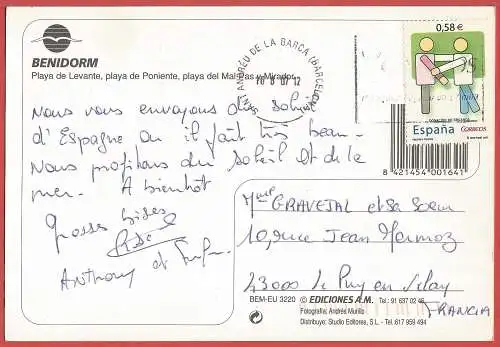 BENIDORM
Playa de Levante, playa de Poniente, playa del Mal Pas y Mirador.
Nous vous envoyons du soleil
d'Espagne ou il fait très beau.
Nous profitons du soleil et de la
mer. A bientôt
Grosses bises
Anthony et
SANT ANDREU DE LA BARCA (BARCELONA)
10 8 07 12
0,58 €
España
CORREOS
8 421454 001641
Mme GRAVEJAL et sa soeur
10, rue Jean Mermoz
43000 Le Puy en Velay
FRANCIA
BEM-EU 3220 © EDICIONES A.M. Tel.: 91 637 02 46
Fotografía: Andrés Murillo
Distribuye: Studio Editores, S.L. - Tel. 617 959 494